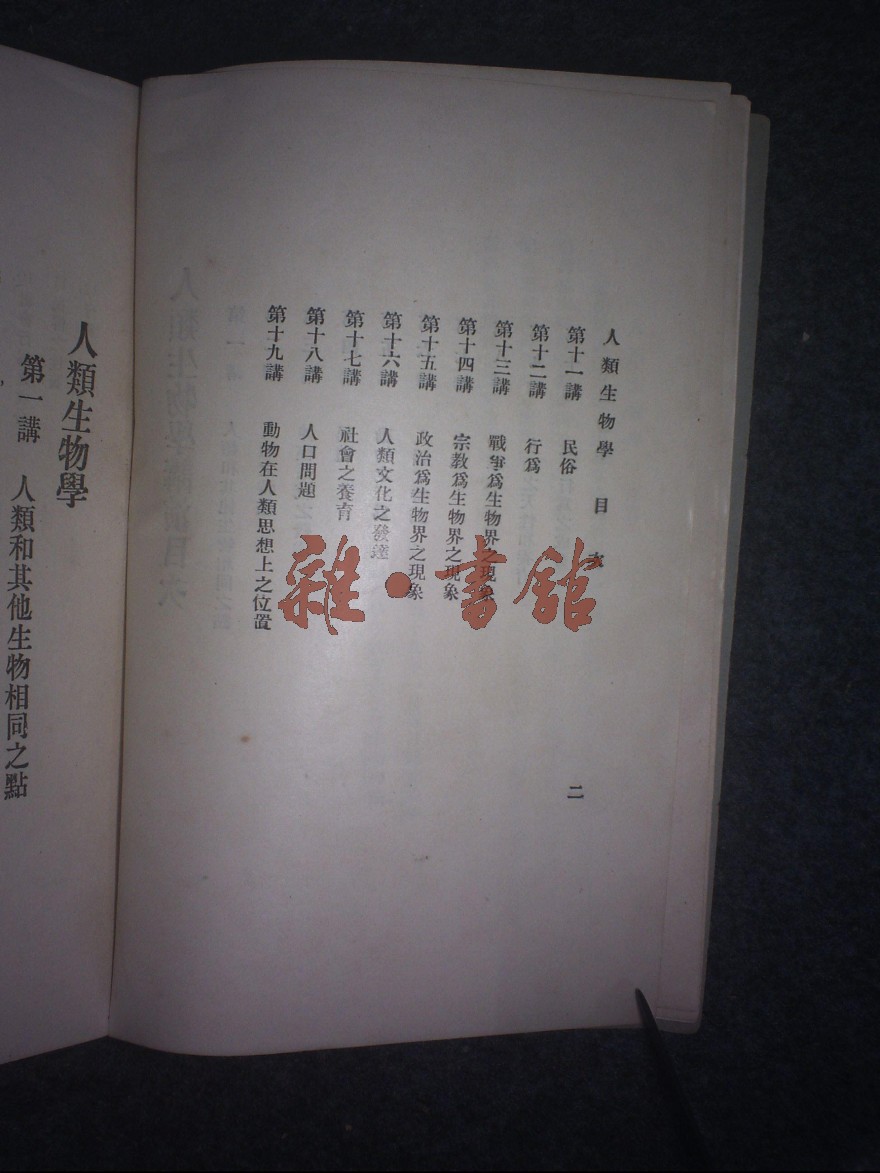 人類生物學 目次
第十一講 民俗
第十二講 行爲
第十三講 戰爭爲生物界之現象
第十四講 宗教爲生物界之現象
第十五講 政治爲生物界之現象
第十六講 人類文化之發達
第十七講 社會之養育
第十八講 人口問題
第十九講 動物在人類思想上之位置
二
人類生物學
第一講 人類和其他生物相同之點
雜·書館